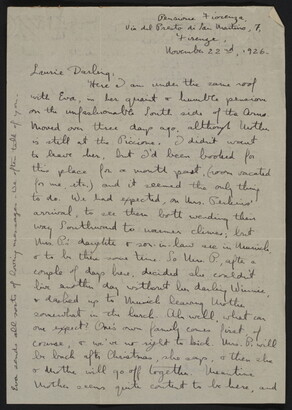 Pensione Fiorenza,
Via del Presto di San Martino, 7,
Firenze,
November 22nd, 1926.
Laurie Darling,
Here I am under the same roof
with Eva, in her quaint & humble pension
on the unfashionable South side of the Arno.
Moved over three days ago, although Mother
is still at the Piccione. I didn't want
to leave her, but I'd been booked for
this place for a month past, (room vacated
for me, etc.) and it seemed the only thing
to do. We had expected, on Mrs. Perkins'
arrival, to see them both wending their
way Southward to warmer climes; but
Mrs P.'s daughter & son-in-law are in Munich,
& to be there some time. So Mrs. P., after a
couple of days here, decided she couldn't
live another day without her darling Winnie,
& dashed up to Munich leaving Mother
somewhat in the lurch. Ah well, what can
one expect! One's own family comes first, of
course, & we've no right to kick. Mrs. P. will
be back after Christmas, she says, & then she
& Mother will go off together. Meantime
Mother seems quite content to be here, and
Eva sends all sorts of loving messages. We often talk of you.